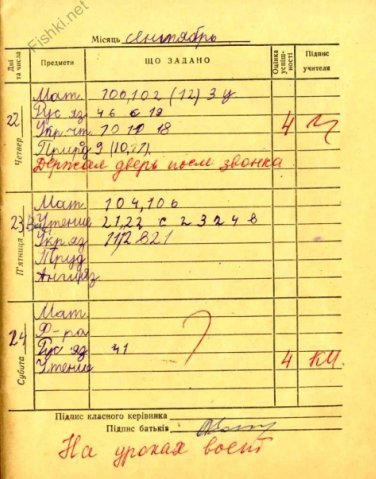 Fishki.net
Місяць сентябрь
Дні та числа Предмети ЩО ЗАДАНО Оцінка успішності Підпис учителя
Четвер 22
Мат. 100, 102 (12) 3 у
Рус яз 46 с 19
Укр. чт. 10 11 18 4
Природ 9 (10,11)
Держал дверь после звонка
П'ятниця 23
Мат. 104, 106
Чтение 21, 22 с 23 24 в
Укр яз
Труд
Англ яз.
Субота 24
Мат.
Ф-ра
Рус яз 41
Чтение 4 КМ.
Підпис класного керівника
Підпис батьків
На уроках воет